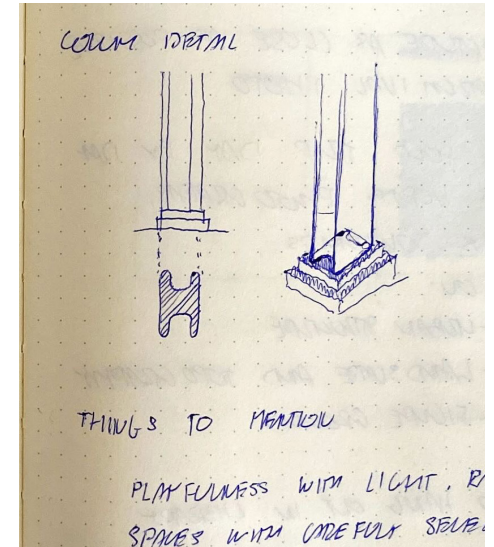 COLUM DETAIL
THINGS TO MENTION
PLAYFULNESS WITH LIGHT,
SPACES WITH CAREFULY